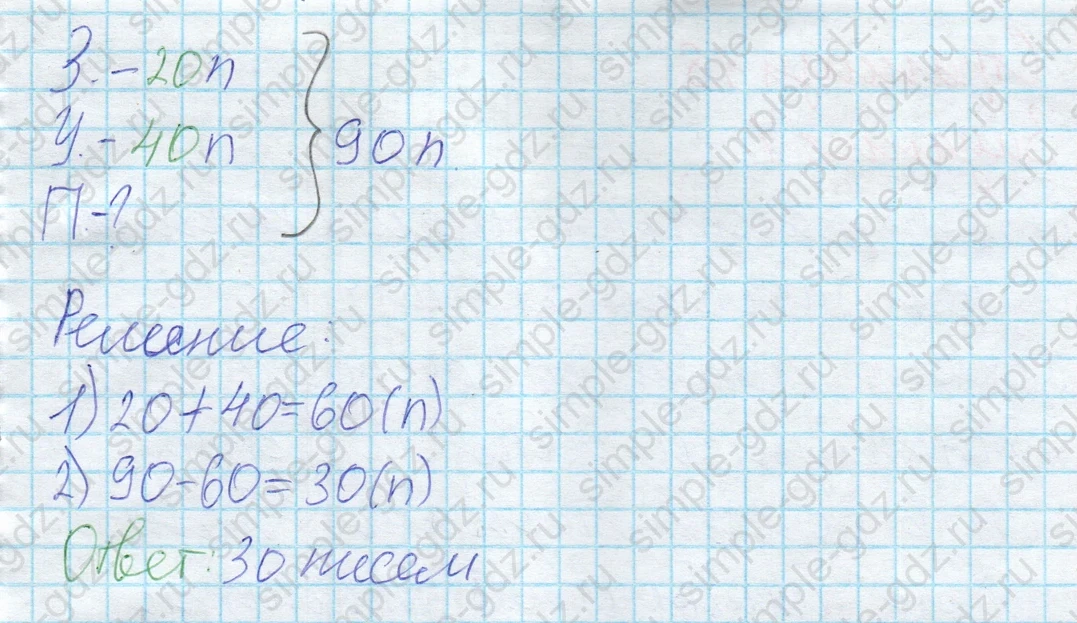 З. – 20п
У. – 40п
П. – ?
90п
Решение:
1) 20 + 40 = 60 (п)
2) 90 – 60 = 30 (п)
Ответ: 30 писем
simple-gdz.ru